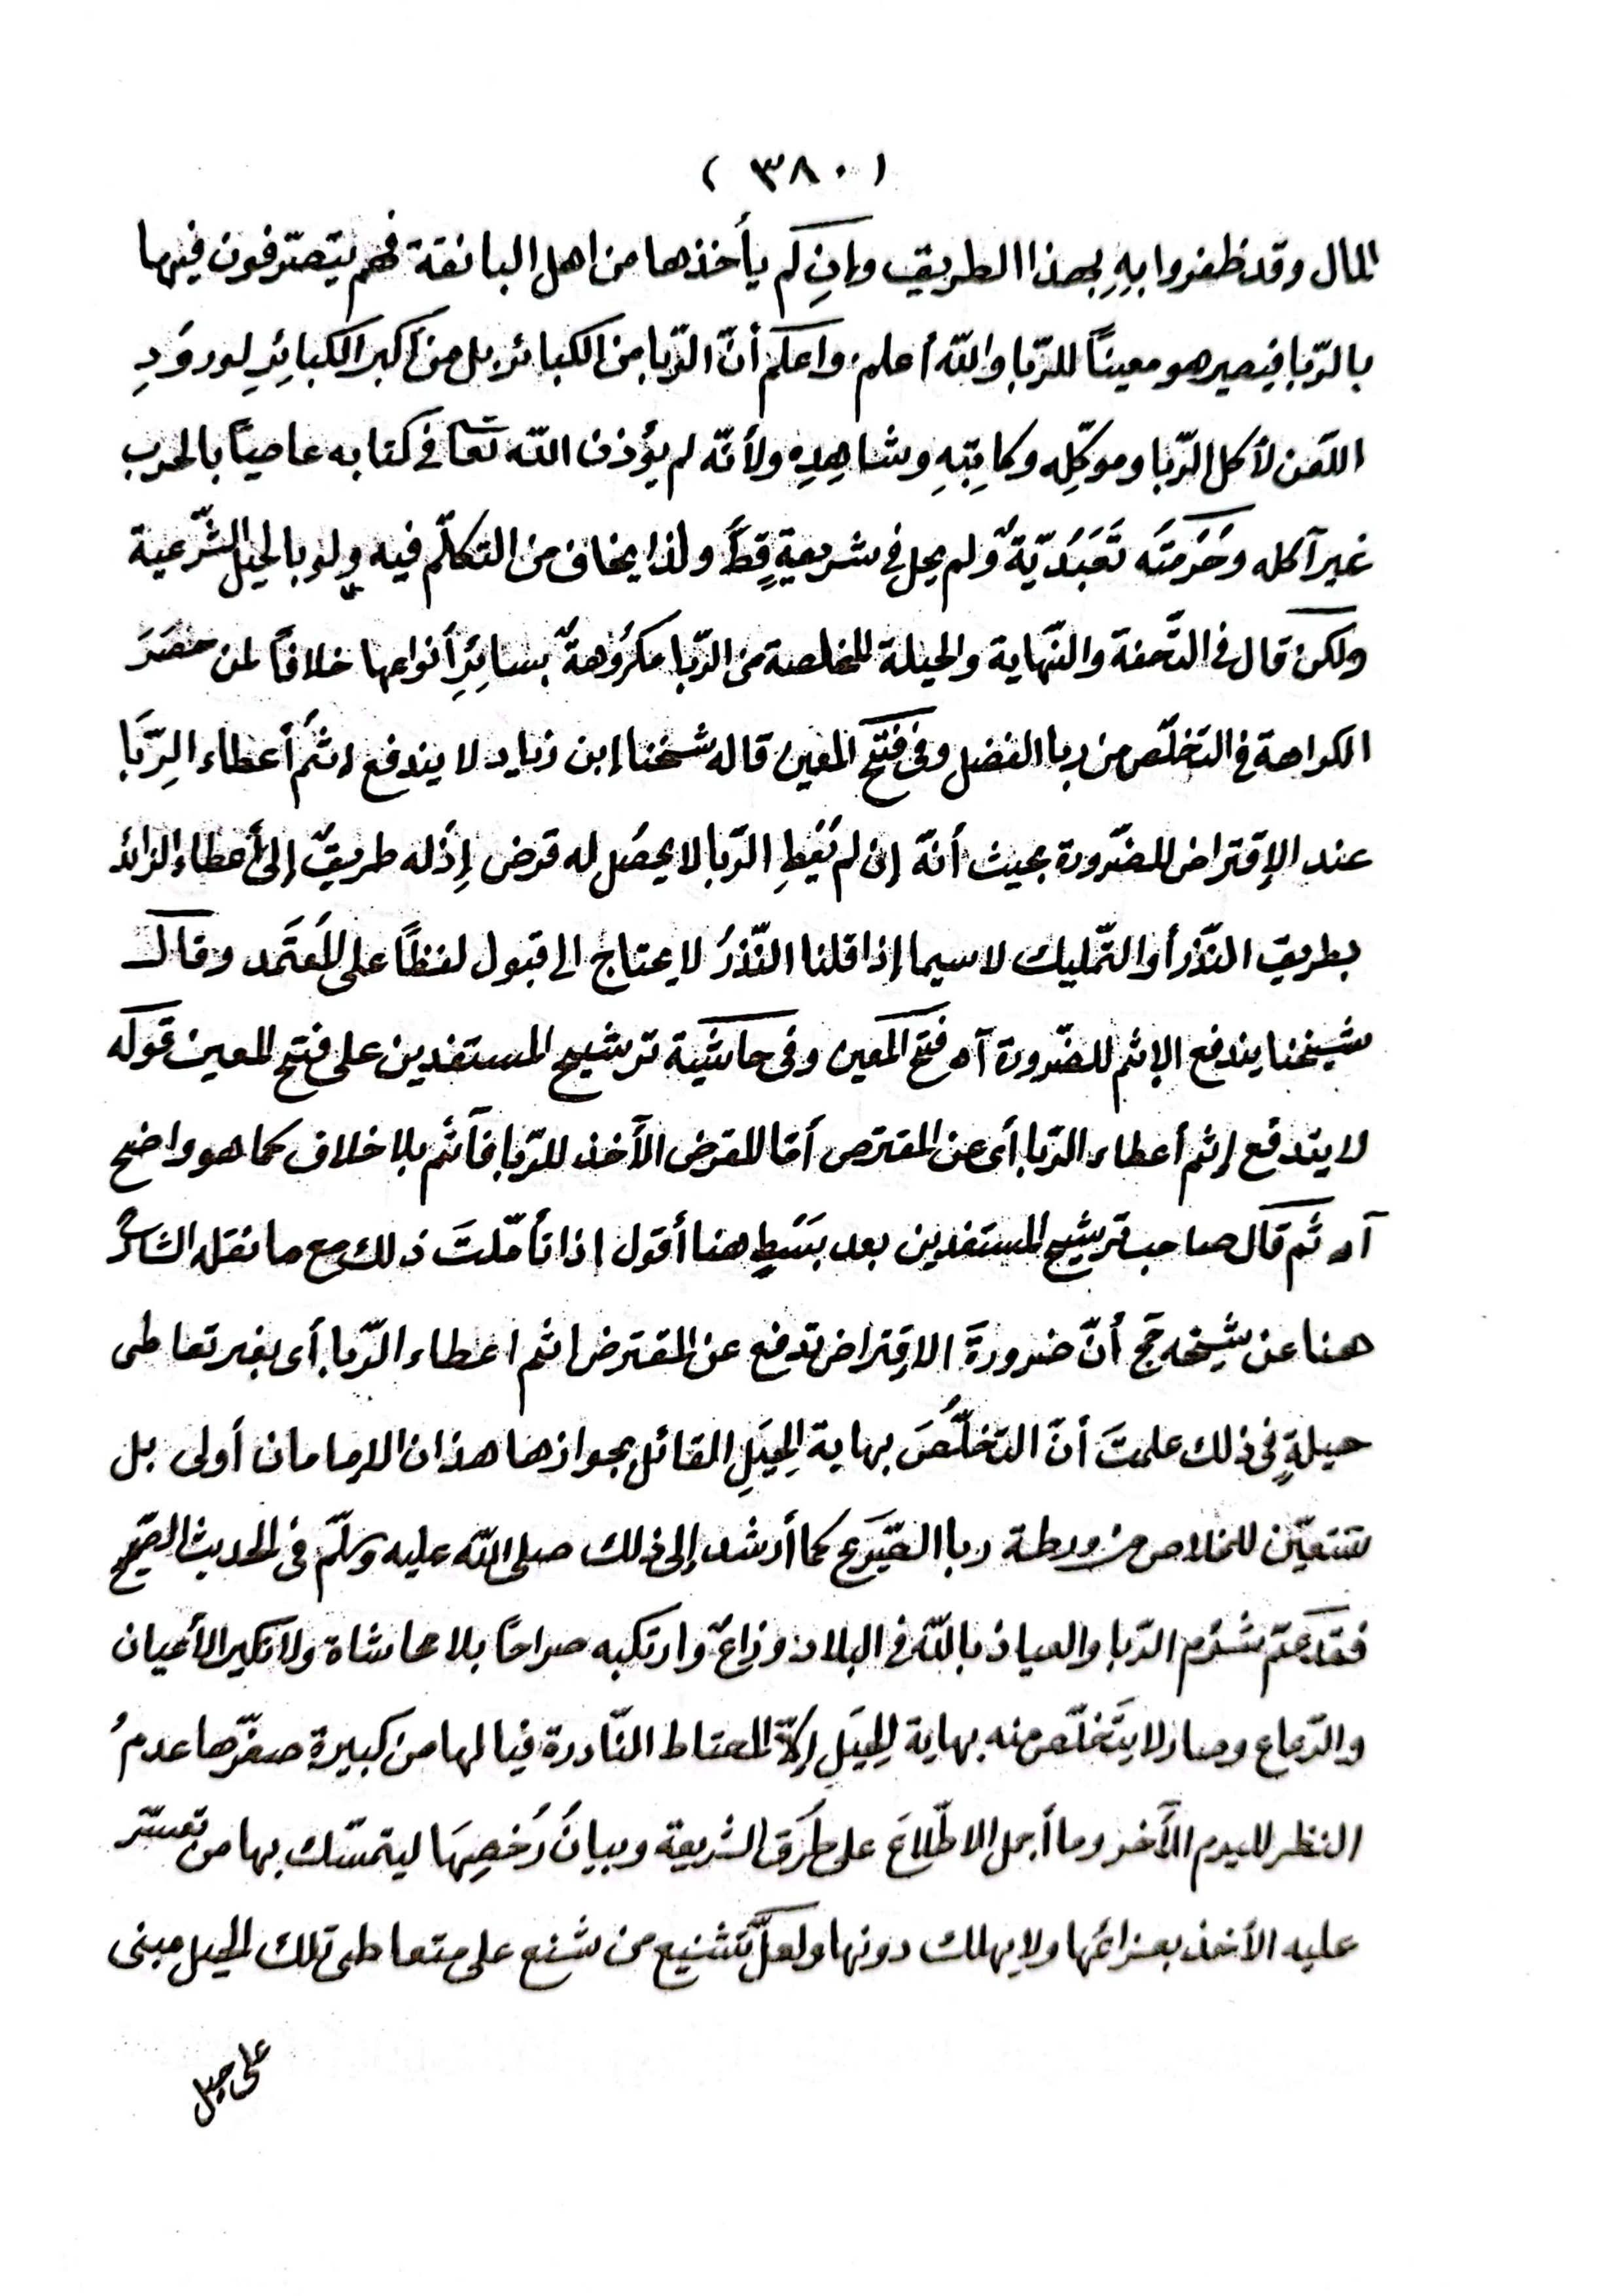 ( ٣٨٠ )
المال وقد ظفروا بِهِ بهذا الطريق وإنِ لم يأخذها من اهل البانقة فهم يتصرّفون فيها
بالرّبا فيصير هو معيناً للرّبا واللّه أعلم، واعلم أنّ الرّبا من الكبائر بل من أكبر الكبائِرِ لورودِ
اللّعن لأكل الرّبا وموكّلِه وكاتِبِهِ وشاهِدِهِ ولأنّه لم يؤذن اللّه تعا في كتابه عاصياً بالحرب
غير آكله وحُرمتَه تَعَبُدّيّةٌ ولم يحل في شريعةٍ قطُّ ولذا يخاف من التكلّم فيه ولو بالحيل الشّرعية
ولكن قال في التّحفة والنّهاية والحيلة المخلصة من الرّبا مكرُوهةٌ بسائِرِ أنواعها خلافاً لمن حصَرَ
الكراهة في التخلّص من ربا الفضل وفي فتح المعين قاله شيخنا إبن زياد لا يندفع إثمُ أعطاء الرِّبَا
عند الإقتراض للضّرورة بحيث أنّه إن لم يُعْطِ الرّبا لا يحصُل له قرض إذْ له طريقٌ إلى أعطاء الزائد
بطريق النّذر أو التّمليك لاسيما إذا قلنا النّذرُ لا يحتاج الى قبول لفظاً على المُعتَمد وقال
شيخنا يندفع الإثم للضّرورة آه فتح المعين وفي حاشية ترشيح المستفدين على فتح المعين قوله
لا يندفع إثم أعطاء الرّبا أى عن المقترص أمّا المقرض الآخذ للرّبا فآثم بلا خلاف كما هو واضح
آه ثم قال صاحب ترشيح المستفدين بعد بَسْطٍ هنا أقول إذا تأمّلتَ ذلك مع ما نقله الشارحُ
هنا عن شيخه حج أنّ ضرورةَ الاقتراض تدفع عن المقترض اثم اعطاء الرّبا أى بغير تعاطى
حيلةٍ فى ذلك علمتَ أنّ التخلُّصَ بهاية الحِيَلِ القائل بجوازها هذان الإمامان أولى بل
تتعيّن للخلاص من ورطة ربا الصّريح كما أرشد إلى ذلك صلى اللّه عليه وسلّم فى الحديث الصحيح
فقد عمّ شؤم الرّبا والعياذ باللّه فى البلاد وذاعَ وارتكبه صراحًا بلا محاشاة ولا نكير الأعيان
والرّعاع وصار لا يتَخلّص منه بهاية الحِيَلِ إلاّ المحتاط النّادرة فيا لها من كبيرة صغّرها عدمُ
النظر لليوم الآخر وما أجمل الاطّلاعَ على طُرَق الشريعة وبيانُ رُخصِهَا ليتمسّك بها من تعسّر
عليه الأخذ بعزائمها ولا يهلك دونها ولعلّ تَشْنيع من شنع على متعاطى تلك الحيل مبنى
على جهل